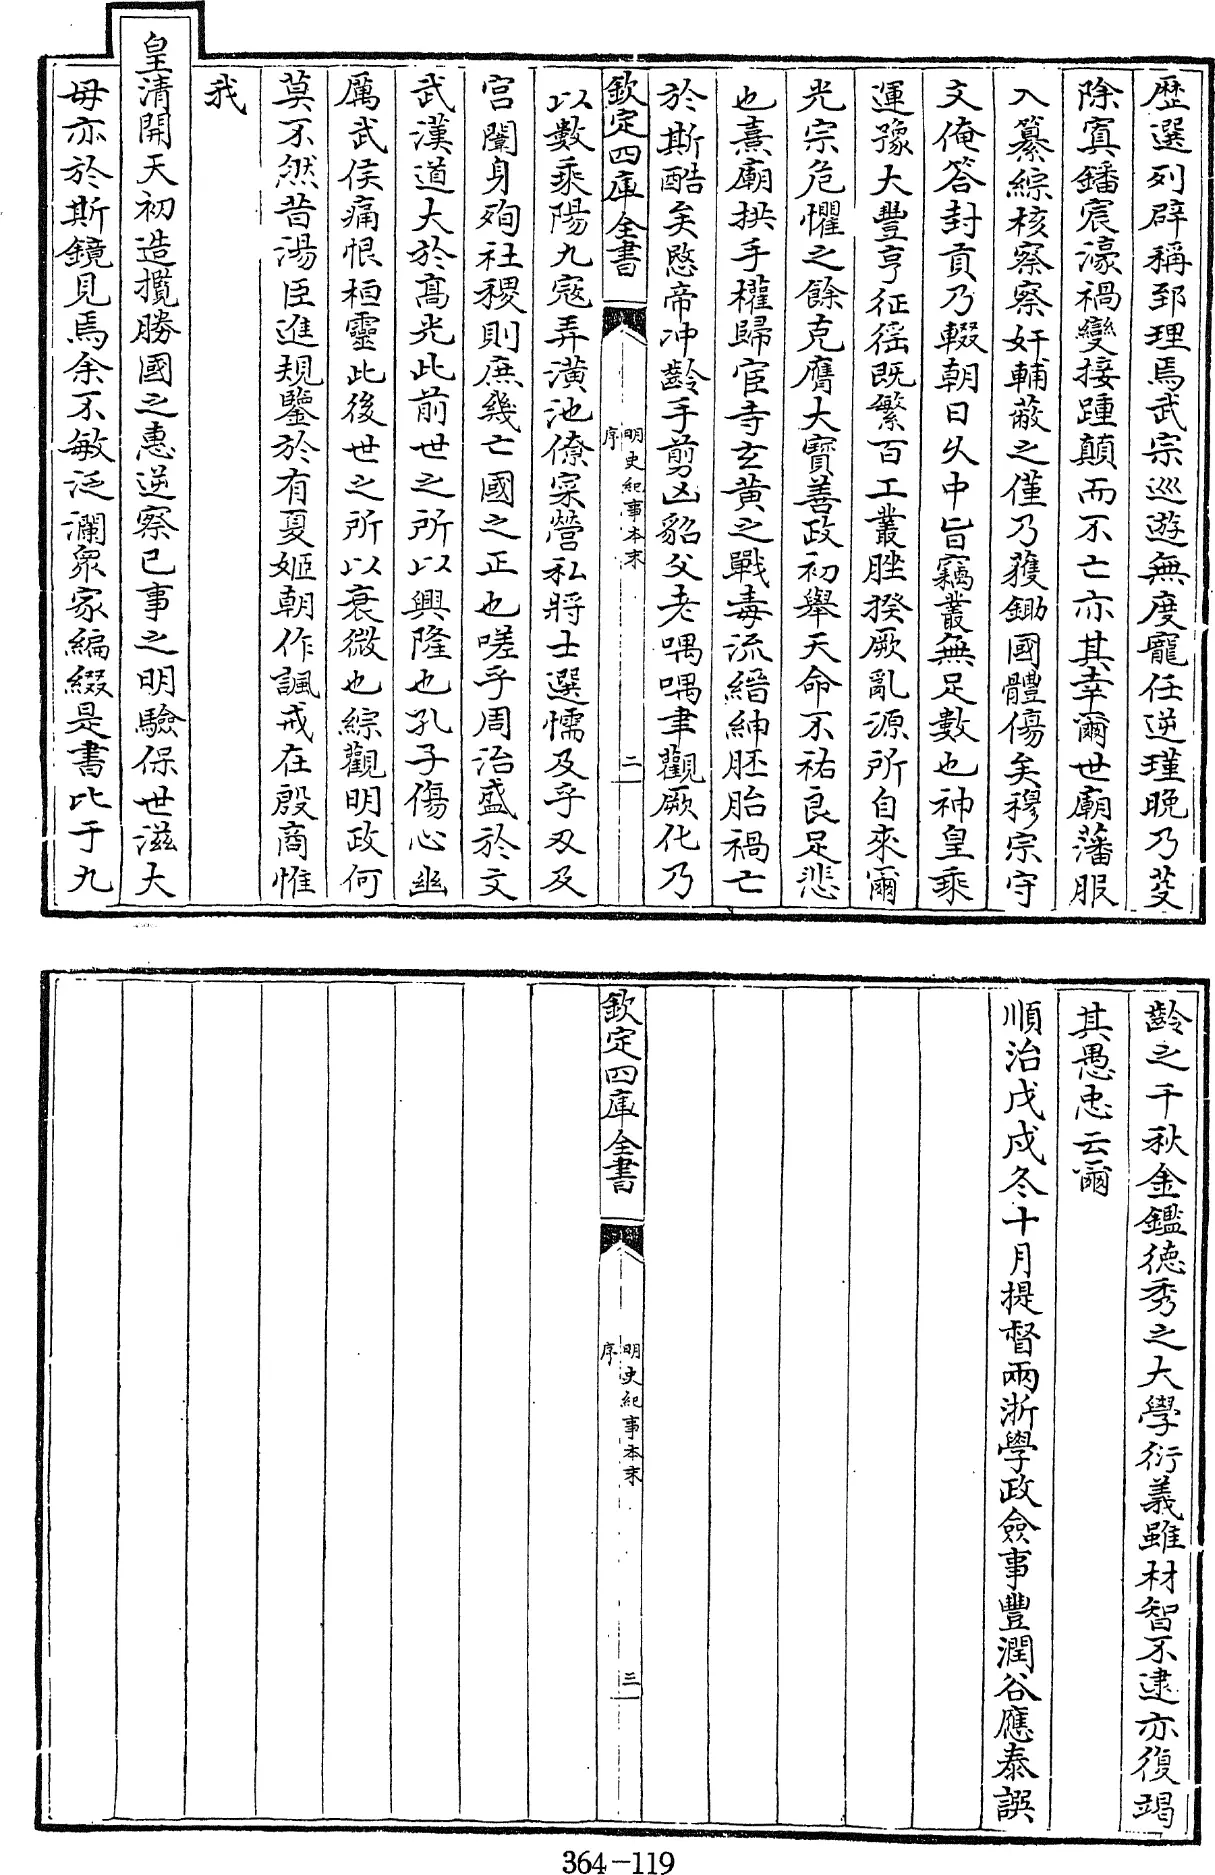 歴選列辟稱郅理焉武宗巡遊無度寵任逆瑾晚乃芟
除寘鐇宸濠禍變接踵顛而不亡亦其幸爾世廟藩服
入纂綜核察察奸輔蔽之僅乃獲鋤國體傷矣穆宗守
文俺答封貢乃輟朝日久中旨竊叢無足數也神皇乘
運豫大豐亨征徭既繁百工叢脞揆厥亂源所自來爾
光宗危懼之餘克膺大寶善政初舉天命不祐良足悲
也熹廟拱手權歸宦寺玄黃之戰毒流縉紳胚胎禍亡
於斯酷矣愍帝冲齡手剪凶貂父老喁喁聿觀厥化乃
欽定四庫全書
明史紀事本末
序
二
以數乘陽九寇弄潢池僚寀營私將士選懦及乎刄及
宫闈身殉社稷則庶幾亡國之正也嗟乎周治盛於文
武漢道大於高光此前世之所以興隆也孔子傷心幽
厲武侯痛恨桓靈此後世之所以衰微也綜觀明政何
莫不然昔湯臣進規鑒於有夏姬朝作諷戒在殷商惟
我
皇清開天初造攬勝國之惠逆察已事之明驗保世滋大
毋亦於斯鏡見焉余不敏泛瀾衆家編綴是書比于九
齡之千秋金鑑德秀之大學衍義雖材智不逮亦復竭
其愚忠云爾
順治戊戌冬十月提督兩浙學政僉事豐潤谷應泰譔
欽定四庫全書
明史紀事本末
序
三
364-119